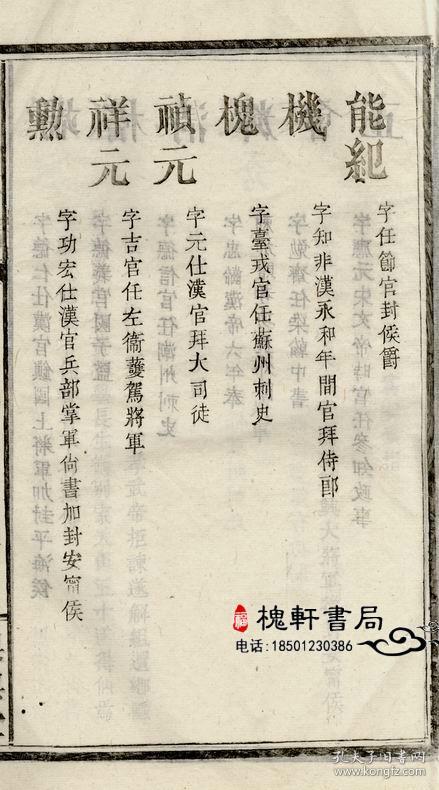 能紀
字任節官封侯爵
機
字知非漢永和年間官拜侍郎
槐
字臺戎官任蘇州刺史
禎元
字元仕漢官拜大司徒
祥元
字吉官任左衞護駕將軍
勲
字功宏仕漢官兵部掌軍尙書加封安甯侯
槐軒書局
电话:18501230386
孔夫子旧书网
www.kongfz.com